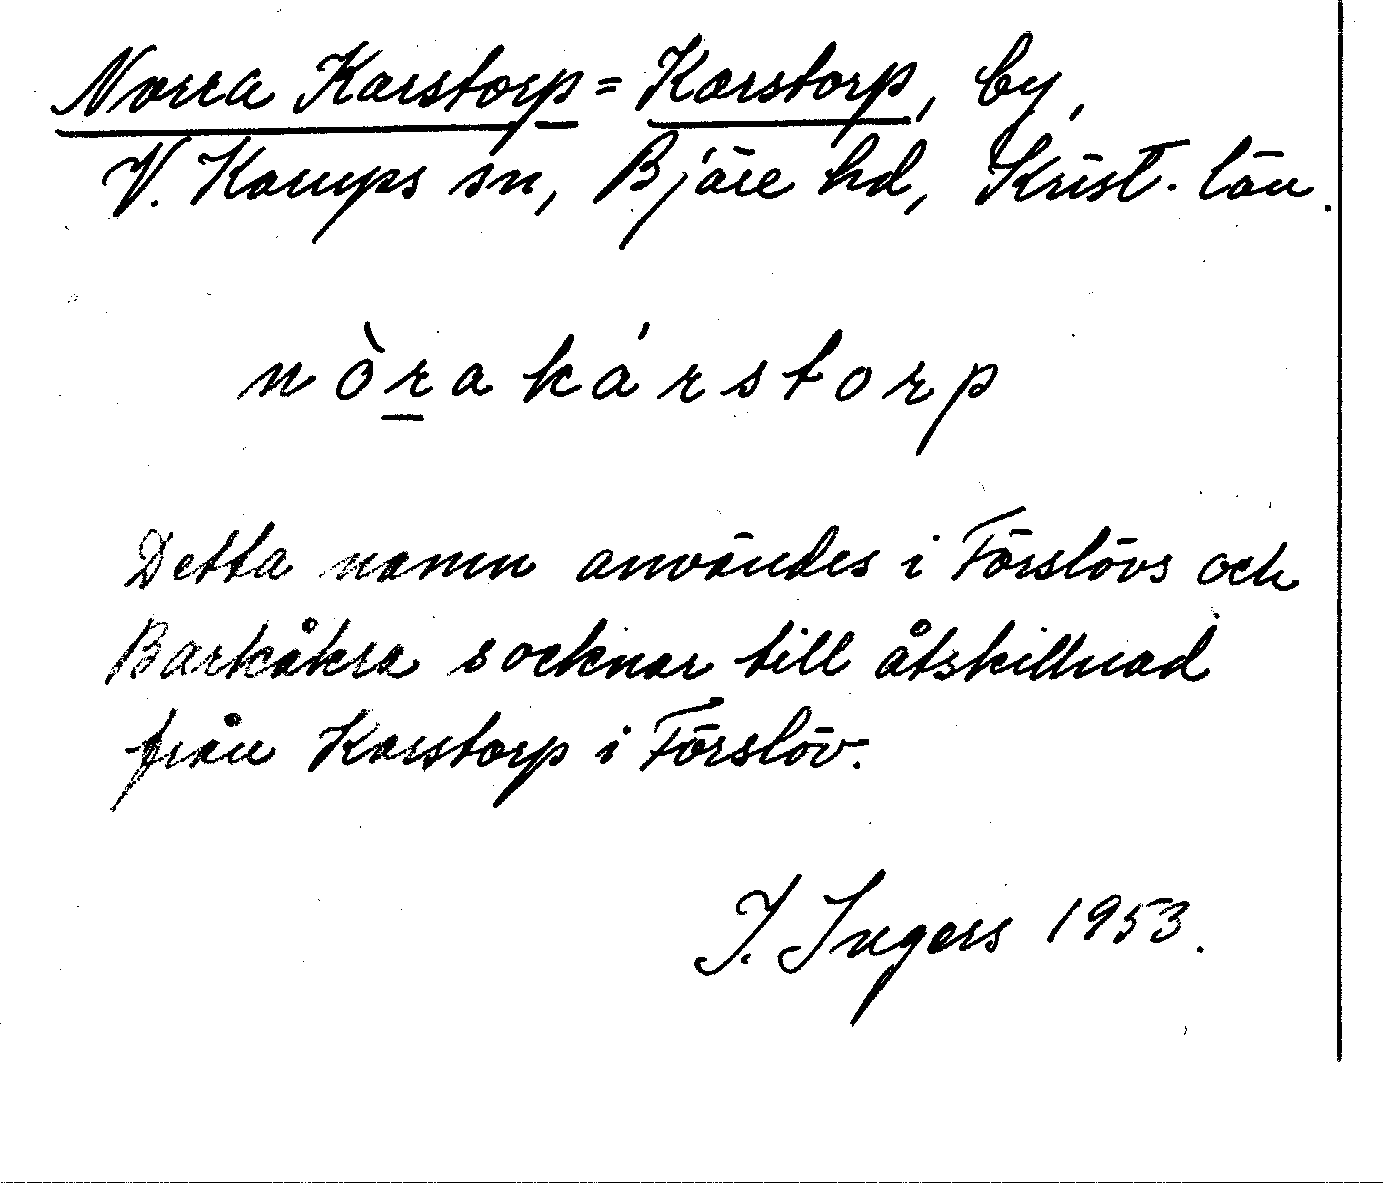 Norra Karstorp = Karstorp, by,
V. Karups sn, Bjäre hd, Krist. län.
nòr̲akárstorp
Detta namn användes i Förslövs och
Barkåkra socknar till åtskillnad
från Karstorp i Förslöv.
I. Ingers 1953.